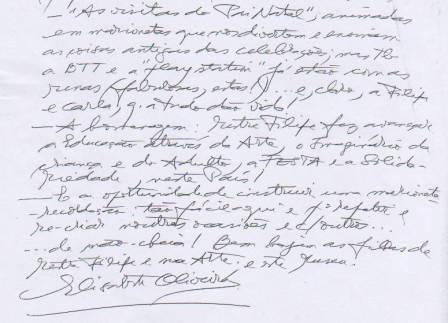 — "As visitas do Pai Natal", animadas
em marionetas que nos divertem e ensinam
as coisas antigas das celebrações; mas tb
a BTT e a "playstation" já estão com as
renas (fabulosas, estas!) ... e, claro, a Filipa
e Carla, q. a tudo dão vida!
— A homenagem: Mestre Filipe faz avançar
a Educação através da Arte, o Imaginário da
Criança e do Adulto, a FESTA e a Solida-
riedade, neste País!
— E a oportunidade de construir uma marioneta
-recordação: tão fácil aqui e p/ repetir e
re-criar noutras ocasiões e c/ outros...
... de mão-cheia! Bem hajam as filhas de
Mestre Filipe e na Arte. e este Museu.
Elisabete Oliveira